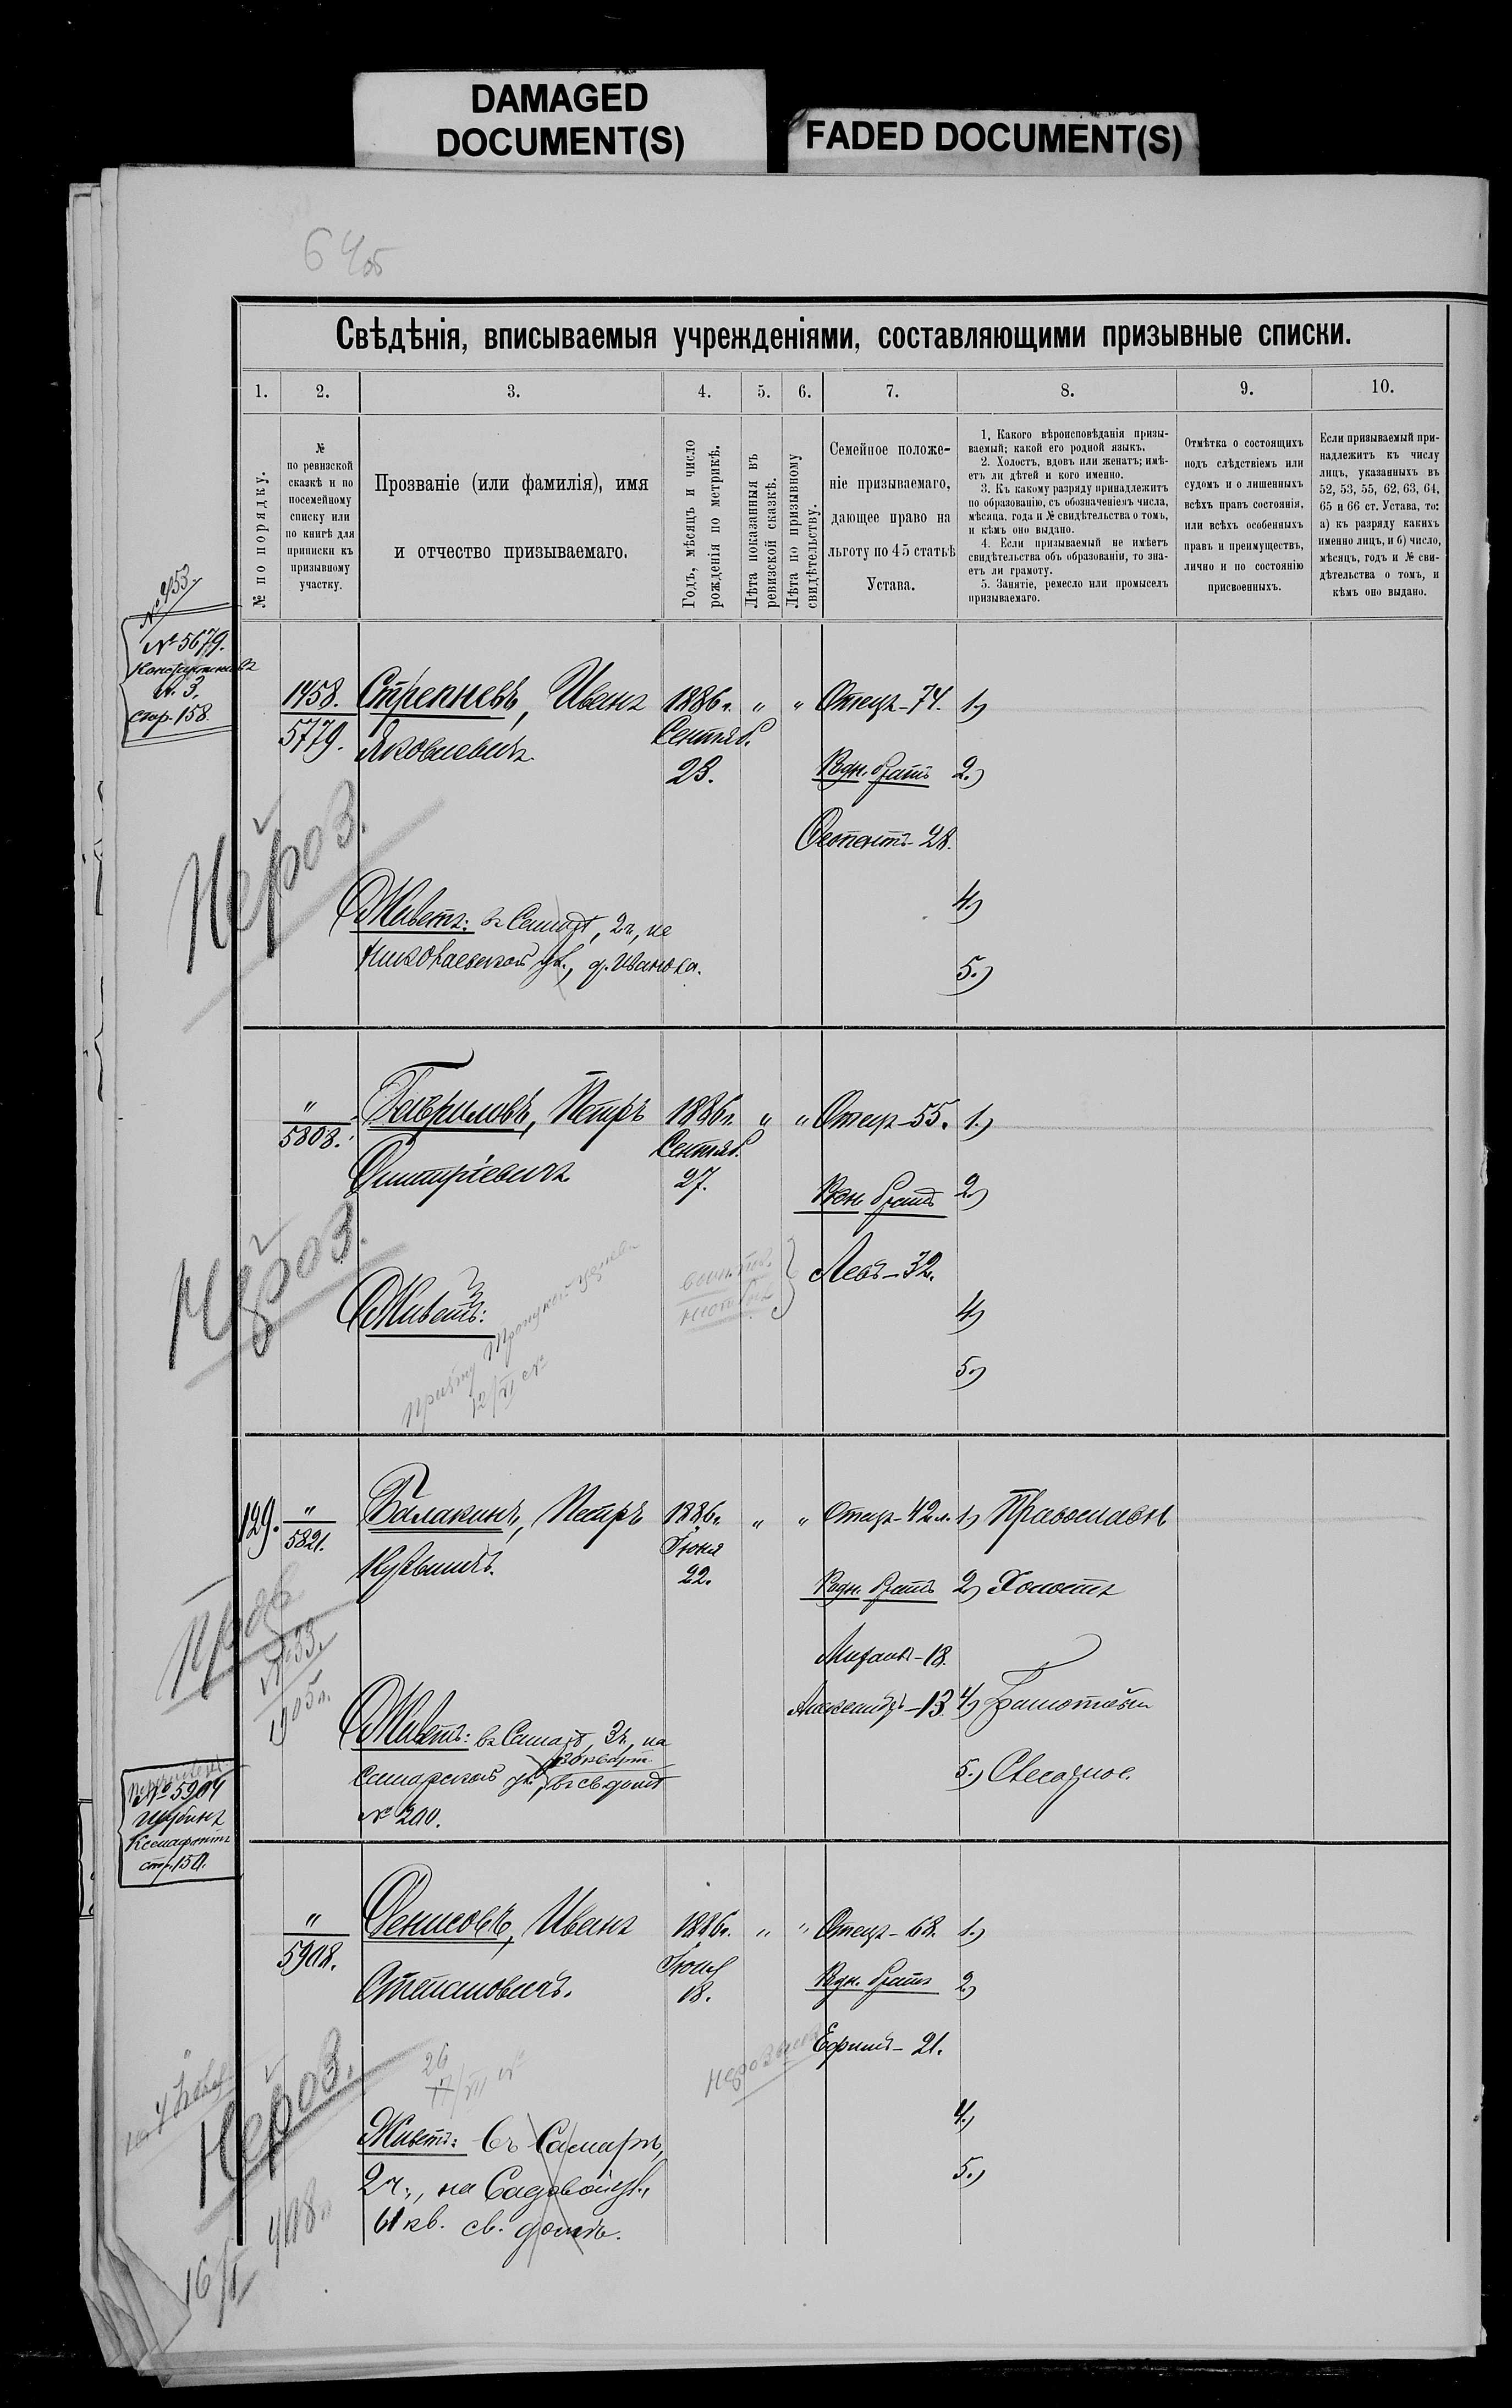 DAMAGED
DOCUMENT(S)
FADED DOCUMENT(S)
64об
Свѣдѣнія, вписываемыя учрежденіями, составляющими призывные списки.
1. 2. 3. 4. 5. 6. 7. 8. 9. 10.
№ по порядку.
№
по ревизской
сказкѣ и по
посемейному
списку или
по книгѣ для
приписки къ
призывному
участку.
Прозваніе (или фамилія), имя
и отчество призываемаго.
Годъ, мѣсяцъ и число
рожденія по метрикѣ.
Лѣта показанныя въ
ревизской сказкѣ.
Лѣта по призывному
свидѣтельству.
Семейное положе-
ніе призываемаго,
дающее право на
льготу по 45 статьѣ
Устава.
1. Какого вѣроисповѣданія призы-
ваемый; какой его родной языкъ.
2. Холостъ, вдовъ или женатъ; имѣ-
етъ ли дѣтей и кого именно.
3. Къ какому разряду принадлежитъ
по образованію, съ обозначеніемъ числа,
мѣсяца, года и № свидѣтельства о томъ,
и кѣмъ оно выдано.
4. Если призываемый не имѣетъ
свидѣтельства объ образованіи, то зна-
етъ ли грамоту.
5. Занятіе, ремесло или промыселъ
призываемаго.
Отмѣтка о состоящихъ
подъ слѣдствіемъ или
судомъ и о лишенныхъ
всѣхъ правъ состоянія,
или всѣхъ особенныхъ
правъ и преимуществъ,
лично и по состоянію
присвоенныхъ.
Если призываемый при-
надлежитъ къ числу
лицъ, указанныхъ въ
52, 53, 55, 62, 63, 64,
65 и 66 ст. Устава, то:
а) къ разряду какихъ
именно лицъ, и б) число,
мѣсяцъ, годъ и № сви-
дѣтельства о томъ, и
кѣмъ оно выдано.
№ 5679.
стр. 158.
1458. Стрепневъ, Иванъ 1886г. " " Отецъ-74. 1)
5779. Яковлевичъ. Сентяб.
23. Родн. братъ 2.)
28.
Нероз.
4)
Живетъ: въ Самарѣ, 2ч, на
Николаевской ул., д. Иванова.
5.)
" Гавриловъ, Петръ 1886г. " " Отецъ-55. 1.)
5808. Дмитріевичъ Сентяб.
27. Родн. братъ 2)
Нероз.
Левъ-32.
Живетъ:
4)
5)
129. " Балакинъ, Петръ 1886г. " " Отецъ-42л. 1) Православн
5821. Кузьмичъ. Іюня
22. Родн. братъ 2) Холостъ
№ 33.
1905г.
Михаилъ-18.
Александръ-13. 4) Грамотный
Живетъ: въ Самарѣ, 3ч, на
Самарской ул., въ св домѣ
5.) Слесарное.
№ 200.
№ 5904
Шубинъ
Ксенофонтъ
стр. 150.
" Денисовъ, Иванъ 1886г. " " Отецъ-68. 1.)
5908. Степановичъ. Іюля
18. Родн. братъ 2)
Ефимъ-21.
Нероз.
26
4.)
Живетъ: Въ Самарѣ,
2ч., на Садовой ул.,
5.)
61 кв. св. домъ.